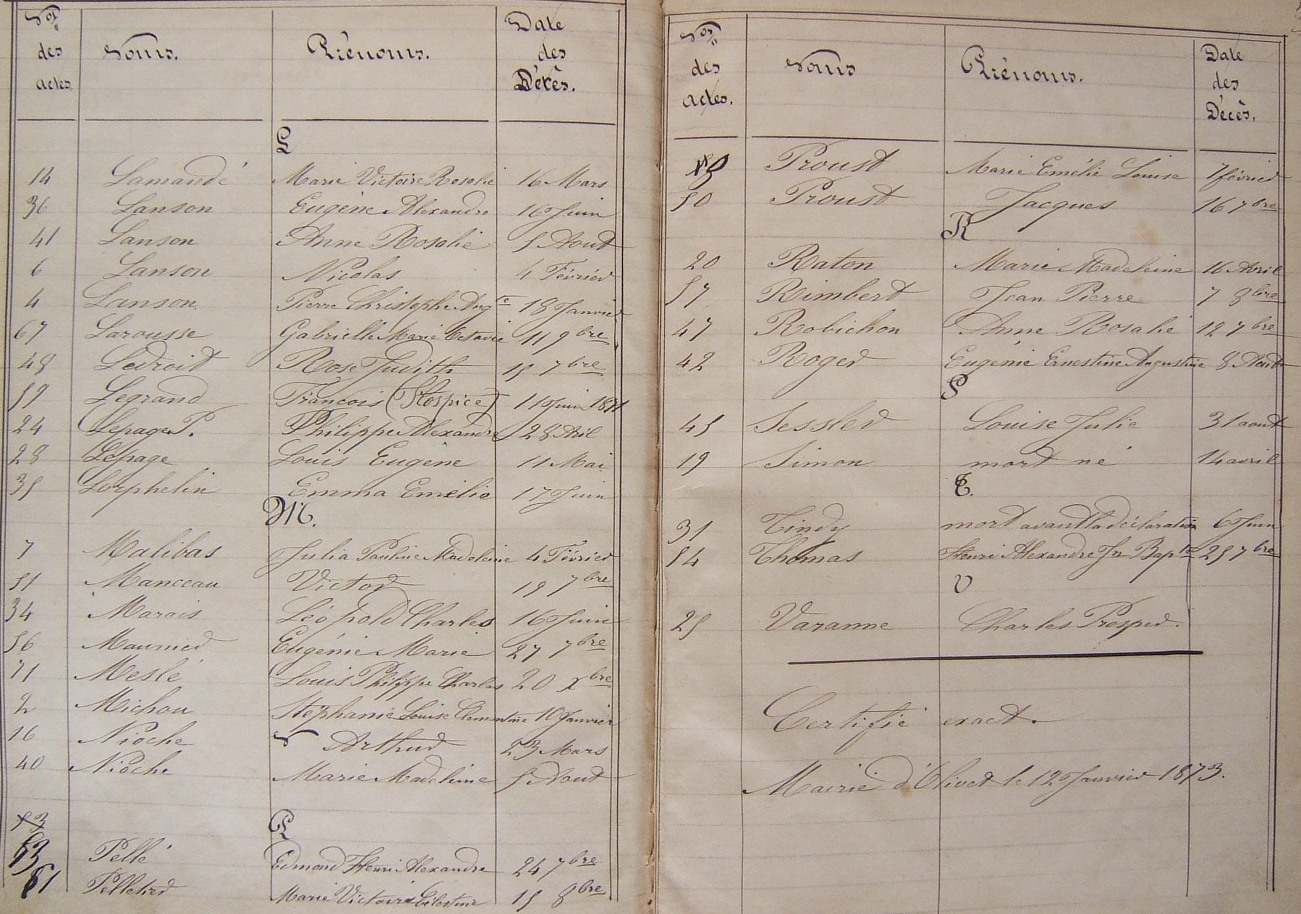 Nos des actes. Noms. Prénoms. Date des Décès.
L
14 Lamandé Marie Victoire Rosalie 16 Mars
36 Lanson Eugène Alexandre 16 Juin
41 Lanson Anne Rosalie 5 Aout
6 Lanson Nicolas 4 Février
4 Lanson Pierre Christophe Aug.te 18 Janvier
67 Larousse Gabrielle Marie Octavie 11 9bre
48 Ledroit Rose Judith 15 7bre
59 Legrand François (Hospice) 11 Juin 1871
24 Lepage P. Philippe Alexandre 28 Avril
28 Lepage Louis Eugène 11 Mai
35 Lorphelin Emma Emélie 17 Juin
M.
7 Malibas Julia Pauline Madeleine 4 Février
51 Manceau Victor 19 7bre
34 Marais Léopold Charles 16 Juin
56 Maunied Eugénie Marie 27 7bre
71 Meslé Louis Philippe Charles 20 Xbre
2 Michou Stéphanie Louise Clementine 10 Janvier
N
16 Nioche Arthur 23 Mars
40 Nioche Marie Madeleine 5 Aout
P
53 Pellé Edmond Henri Alexandre 24 7bre
61 Pelletier Marie Victoire Célestine 15 8bre
Nos des actes. Noms Prénoms. Date des Décès.
Proust Marie Emélie Louise 7 février
50 Proust Jacques 16 7bre
R
20 Raton Marie Madeleine 16 Avril
57 Rimbert Jean Pierre 7 8bre
47 Robichon Anne Rosalie 12 7bre
42 Roger Eugénie Ernestine Augustine 8 Aout
S
45 Sessler Louise Julie 31 aout
19 Simon mort né 14 avril
T.
31 Tindy mort avant la déclaration 6 Juin
54 Thomas Henri Alexandre Jn Bapte 25 7bre
V
25 Varanne Charles Prosper.
Certifié exact.
Mairie d'Olivet le 12 Janvier 1873.